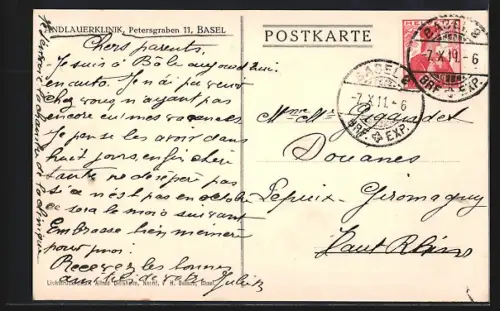 ANDLAUERKLINIK, Petersgraben 11, BASEL
POSTKARTE
HELVETIA
BASEL 2
-7.X.11.-6
BRF. EXP.
BASEL 2
-7.X.11.-6
BRF. EXP.
Chers parents.
Je suis à Bâle aujourd'hui
en auto. Je n'ai pu venir
chez vous n'ayant pas
encore eu mes vacances
Je pense les avoir dans
huit jours, enfin chère
tante ne désespère pas
si ce n'est pas en octobre
ce sera le mois suivant
Embrasse bien
pour moi.
Recevez les bonnes
de votre Juliette
Mme
Douanes
Lepuix-Giromagny
Haut Rhin